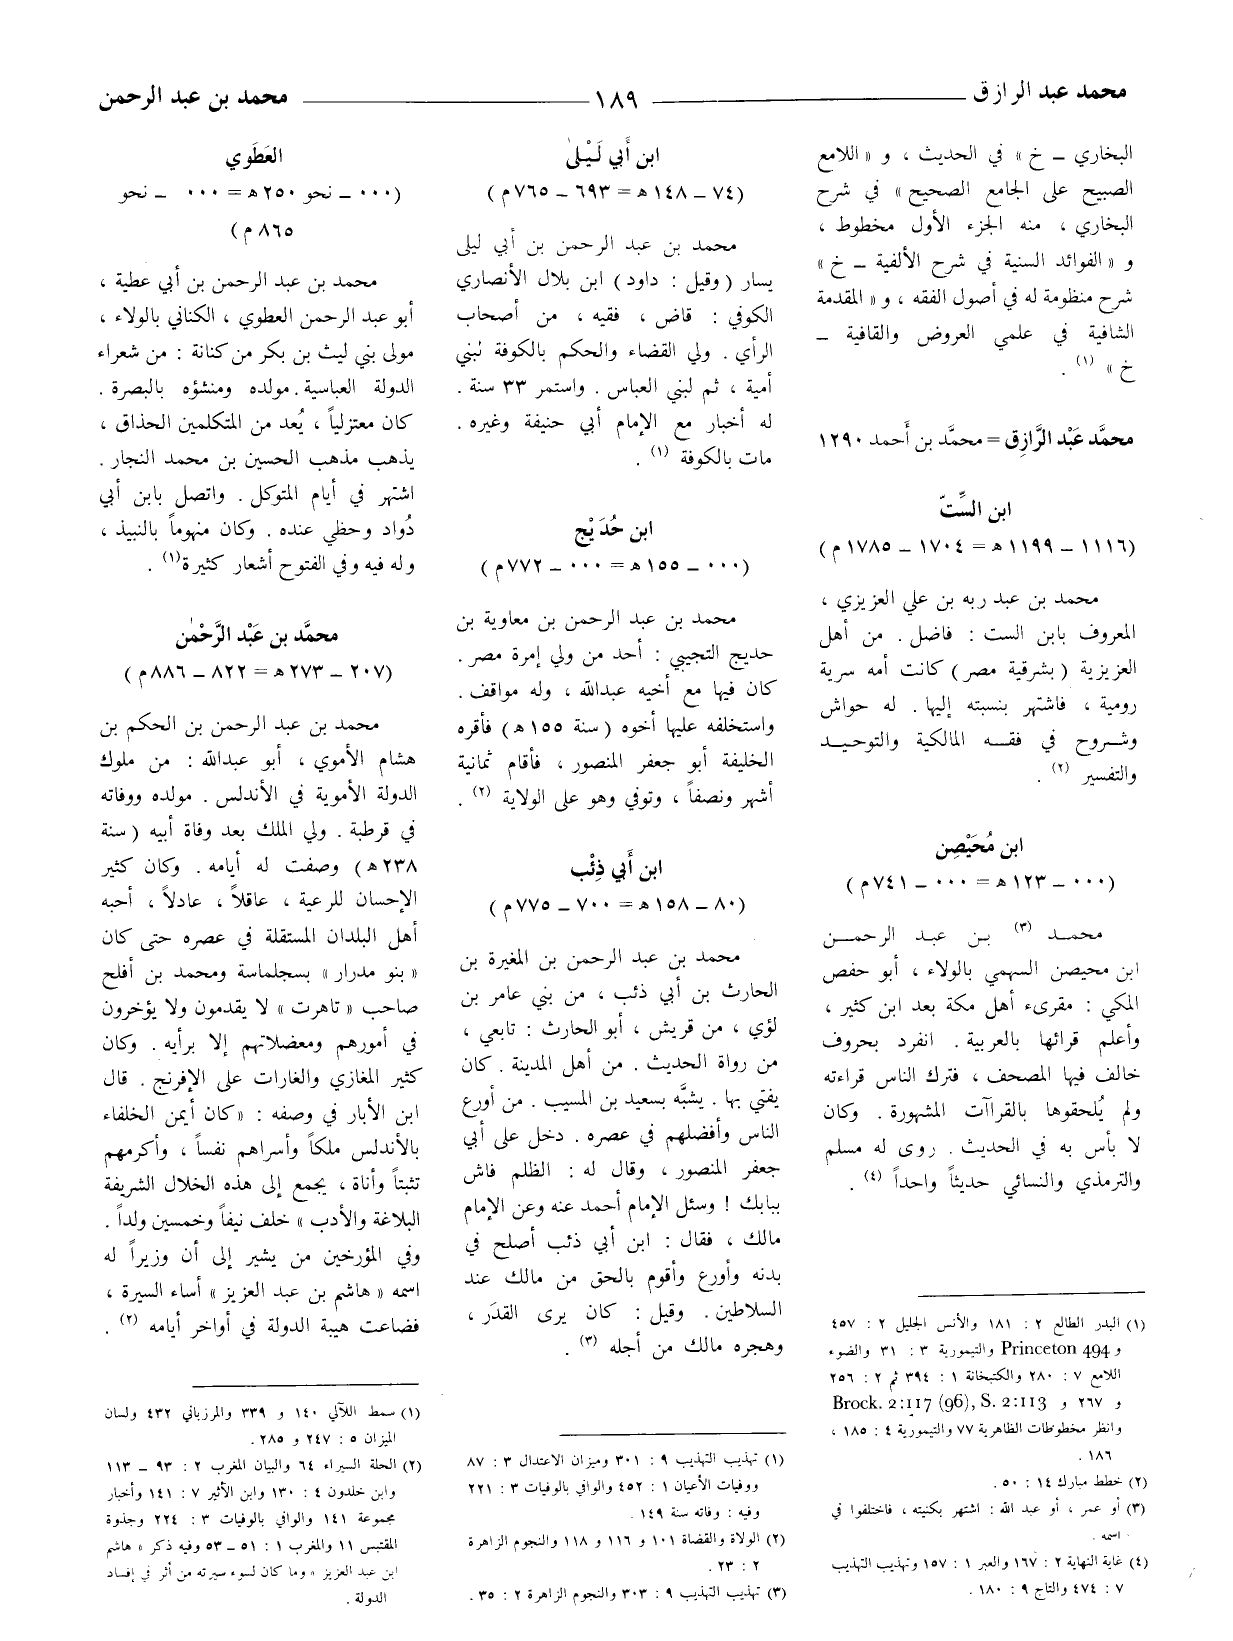 محمد عبد الرازق ــــــ ١٨٩ ــــــ محمد بن عبد الرحمن
البخاري ــ خ » في الحديث ، و « اللامع
الصبيح على الجامع الصحيح » في شرح
البخاري ، منه الجزء الأول مخطوط ،
و « الفوائد السنية في شرح الألفية ــ خ »
شرح منظومة له في أصول الفقه ، و « المقدمة
الشافية في علمي العروض والقافية ــ
خ » (١) .
محمَّد عَبْد الرَّازِق = محمَّد بن أَحمد ١٢٩٠
ابن السِّتّ
(١١١٦ ــ ١١٩٩ ه‍ = ١٧٠٤ ــ ١٧٨٥ م )
محمد بن عبد ربه بن علي العزيزي ،
المعروف بابن الست : فاضل . من أهل
العزيزية ( بشرقية مصر ) كانت أمه سرية
رومية ، فاشتهر بنسبته إليها . له حواش
وشروح في فقه المالكية والتوحيد
والتفسير (٢) .
ابن مُحَيْصِن
(٠٠٠ ــ ١٢٣ ه‍ = ٠٠٠ ــ ٧٤١ م )
محمد (٣) بن عبد الرحمن
ابن محيصن السهمي بالولاء ، أبو حفص
المكي : مقرىء أهل مكة بعد ابن كثير ،
وأعلم قرائها بالعربية . انفرد بحروف
خالف فيها المصحف ، فترك الناس قراءته
ولم يُلحقوها بالقراآت المشهورة . وكان
لا بأس به في الحديث . روى له مسلم
والترمذي والنسائي حديثاً واحداً (٤) .
(١) البدر الطالع ٢ : ١٨١ والأنس الجليل ٢ : ٤٥٧
و Princeton 494 والتيمورية ٣ : ٣١ والضوء
اللامع ٧ : ٢٨٠ والكتبخانة ١ : ٣٩٤ ثم ٢ : ٢٥٦
و ٢٦٧ و Brock. 2:117 (96), S. 2:113
وانظر مخطوطات الظاهرية ٧٧ والتيمورية ٤ : ١٨٥ ،
١٨٦ .
(٢) خطط مبارك ١٤ : ٥٠ .
(٣) أو عمر ، أو عبد الله : اشتهر بكنيته ، فاختلفوا في
اسمه .
(٤) غاية النهاية ٢ : ١٦٧ والعبر ١ : ١٥٧ وتهذيب التهذيب
٧ : ٤٧٤ والتاج ٩ : ١٨٠ .
ابن أَبي لَيْلىٰ
(٧٤ ــ ١٤٨ ه‍ = ٦٩٣ ــ ٧٦٥ م )
محمد بن عبد الرحمن بن أبي ليلى
يسار ( وقيل : داود ) ابن بلال الأنصاري
الكوفي : قاض ، فقيه ، من أصحاب
الرأي . ولي القضاء والحكم بالكوفة لبني
أمية ، ثم لبني العباس . واستمر ٣٣ سنة .
له أخبار مع الإمام أبي حنيفة وغيره .
مات بالكوفة (١) .
ابن حُدَيْج
(٠٠٠ ــ ١٥٥ ه‍ = ٠٠٠ ــ ٧٧٢ م )
محمد بن عبد الرحمن بن معاوية بن
حديج التجيبي : أحد من ولي إمرة مصر .
كان فيها مع أخيه عبدالله ، وله مواقف .
واستخلفه عليها أخوه ( سنة ١٥٥ ه‍ ) فأقره
الخليفة أبو جعفر المنصور ، فأقام ثمانية
أشهر ونصفاً ، وتوفي وهو على الولاية (٢) .
ابن أَبي ذِئْب
(٨٠ ــ ١٥٨ ه‍ = ٧٠٠ ــ ٧٧٥ م )
محمد بن عبد الرحمن بن المغيرة بن
الحارث بن أبي ذئب ، من بني عامر بن
لؤي ، من قريش ، أبو الحارث : تابعي ،
من رواة الحديث . من أهل المدينة . كان
يفتي بها . يشبَّه بسعيد بن المسيب . من أورع
الناس وأفضلهم في عصره . دخل على أبي
جعفر المنصور ، وقال له : الظلم فاش
ببابك ! وسئل الإمام أحمد عنه وعن الإمام
مالك ، فقال : ابن أبي ذئب أصلح في
بدنه وأورع وأقوم بالحق من مالك عند
السلاطين . وقيل : كان يرى القدَر ،
وهجره مالك من أجله (٣) .
(١) تهذيب التهذيب ٩ : ٣٠١ وميزان الاعتدال ٣ : ٨٧
ووفيات الأعيان ١ : ٤٥٢ والوافي بالوفيات ٣ : ٢٢١
وفيه : وفاته سنة ١٤٩ .
(٢) الولاة والقضاة ١٠١ و ١١٦ و ١١٨ والنجوم الزاهرة
٢ : ٢٣ .
(٣) تهذيب التهذيب ٩ : ٣٠٣ والنجوم الزاهرة ٢ : ٣٥ .
العَطَوي
(٠٠٠ ــ نحو ٢٥٠ ه‍ = ٠٠٠ ــ نحو
٨٦٥ م )
محمد بن عبد الرحمن بن أبي عطية ،
أبو عبد الرحمن العطوي ، الكناني بالولاء ،
مولى بني ليث بن بكر من كنانة : من شعراء
الدولة العباسية . مولده ومنشؤه بالبصرة .
كان معتزلياً ، يُعد من المتكلمين الحذاق ،
يذهب مذهب الحسين بن محمد النجار .
اشتهر في أيام المتوكل . واتصل بابن أبي
دُواد وحظي عنده . وكان منهوماً بالنبيذ ،
وله فيه وفي الفتوح أشعار كثيرة (١) .
محمَّد بن عَبْد الرَّحْمٰن
(٢٠٧ ــ ٢٧٣ ه‍ = ٨٢٢ ــ ٨٨٦ م )
محمد بن عبد الرحمن بن الحكم بن
هشام الأموي ، أبو عبدالله : من ملوك
الدولة الأموية في الأندلس . مولده ووفاته
في قرطبة . ولي الملك بعد وفاة أبيه ( سنة
٢٣٨ ه‍ ) وصفت له أيامه . وكان كثير
الإحسان للرعية ، عاقلاً ، عادلاً ، أحبه
أهل البلدان المستقلة في عصره حتى كان
« بنو مدرار » بسجلماسة ومحمد بن أفلح
صاحب « تاهرت » لا يقدمون ولا يؤخرون
في أمورهم ومعضلاتهم إلا برأيه . وكان
كثير المغازي والغارات على الإفرنج . قال
ابن الأبار في وصفه : « كان أيمن الخلفاء
بالأندلس ملكاً وأسراهم نفساً ، وأكرمهم
تثبتاً وأناة ، يجمع إلى هذه الخلال الشريفة
البلاغة والأدب » خلف نيفاً وخمسين ولداً .
وفي المؤرخين من يشير إلى أن وزيراً له
اسمه « هاشم بن عبد العزيز » أساء السيرة ،
فضاعت هيبة الدولة في أواخر أيامه (٢) .
(١) سمط اللآلي ١٤٠ و ٣٣٩ والمرزباني ٤٣٢ ولسان
الميزان ٥ : ٢٤٧ و ٢٨٥ .
(٢) الحلة السيراء ٦٤ والبيان المغرب ٢ : ٩٣ ــ ١١٣
وابن خلدون ٤ : ١٣٠ وابن الأثير ٧ : ١٤١ وأخبار
مجموعة ١٤١ والوافي بالوفيات ٣ : ٢٢٤ وجذوة
المقتبس ١١ والمغرب ١ : ٥١ ــ ٥٣ وفيه ذكر « هاشم
ابن عبد العزيز » وما كان لسوء سيرته من أثر في إفساد
الدولة .